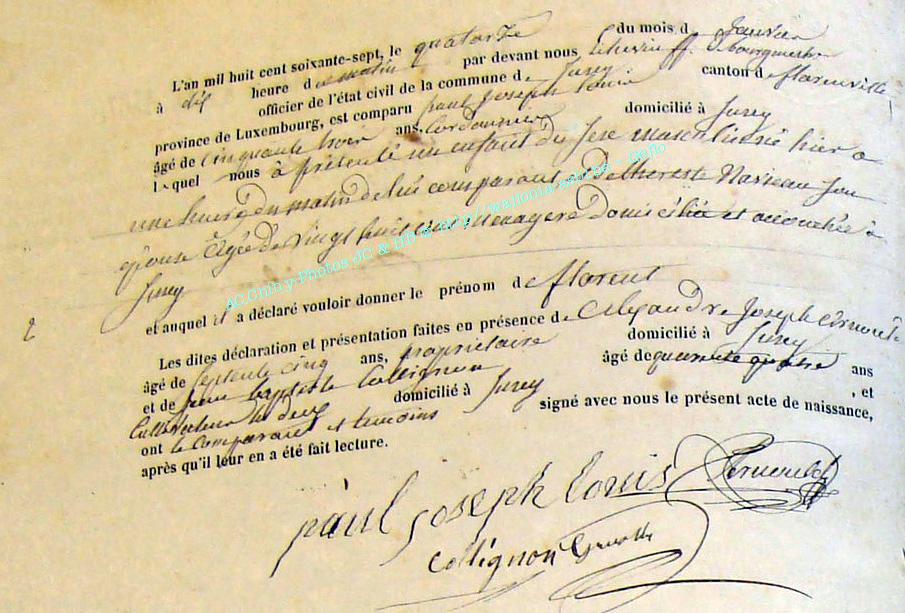 L'an mil huit cent soixante-sept, le quatorze du mois d janvier
à dix heure du matin par devant nous Echevin ff. bourgmestre
officier de l'état civil de la commune d Jusey canton de florenville,
province de Luxembourg, est comparu paul joseph louis
âgé de cinquante trois ans, Cordonnier domicilié à Jusey
lequel nous à présenté un enfant du sexe masculin né hier a
une heure du matin de lui comparant et de therese Marseau son
épouse agée de vingt huit ans menagere domiciliée et accouchée à
Jusey
et auquel il a déclaré vouloir donner le prénom de florent
2
Les dites déclaration et présentation faites en présence de Alexandre Joseph
âgé de septente cinq ans, propriétaire domicilié à Jusey
et de jean baptiste Collignon âgé de quarente quatre ans
Cultivateur domicilié à Jusey , et
ont le Comparant et temoins signé avec nous le présent acte de naissance,
après qu'il leur en a été fait lecture.
paul joseph louis
Collignon
AC Chiny-Photos JC &